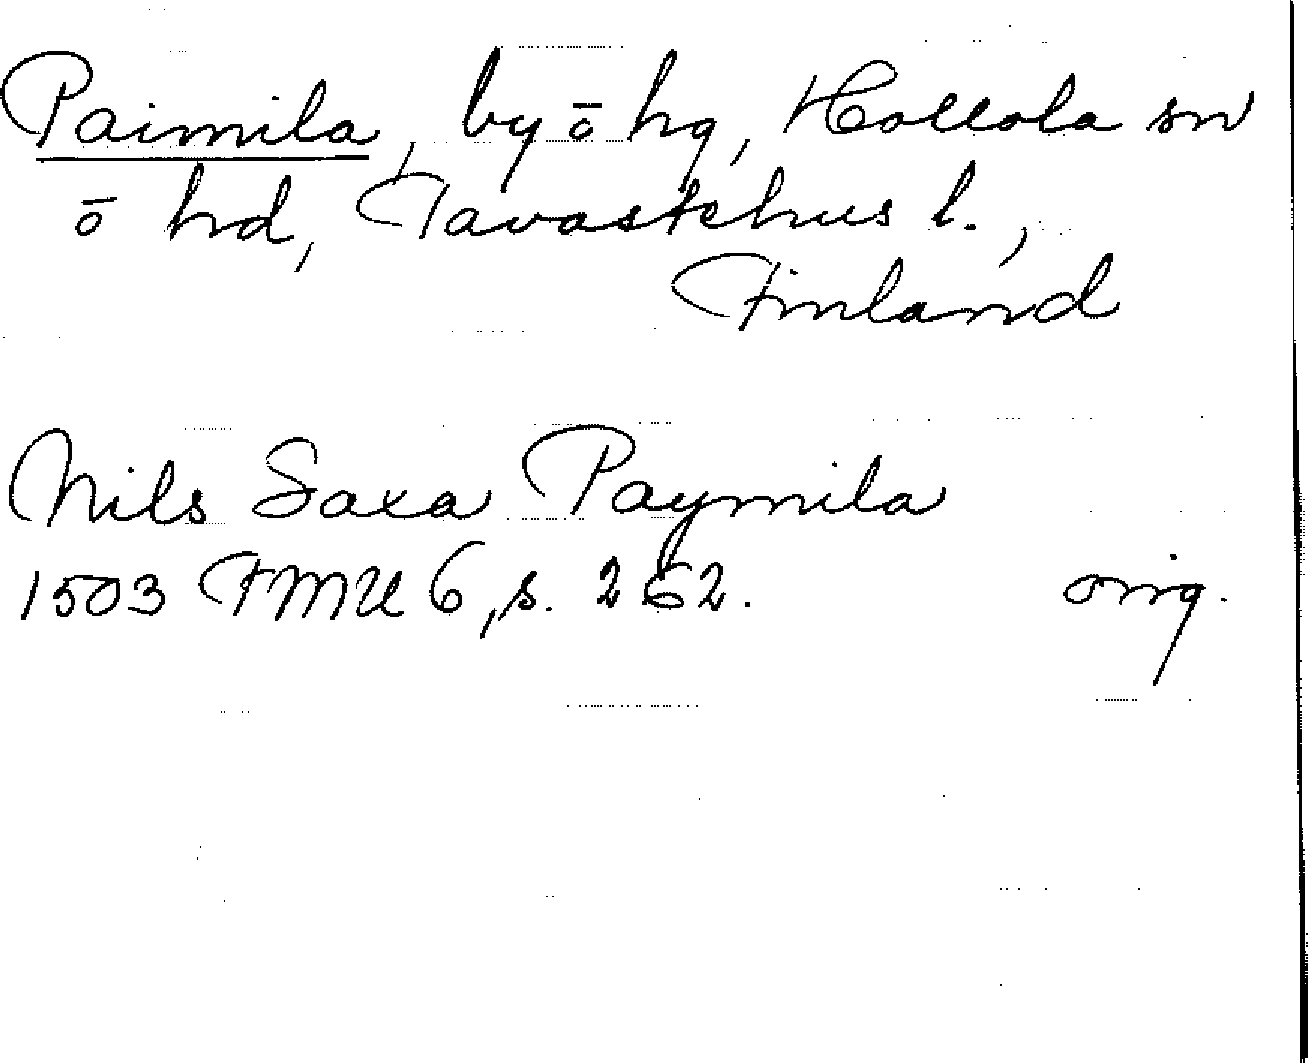 Paimila, by ō hg, Hollola sn
ō hd, Tavastehus l.,
Finland
Nils Saxa Paymila
1503 FMU 6, s. 262. orig.